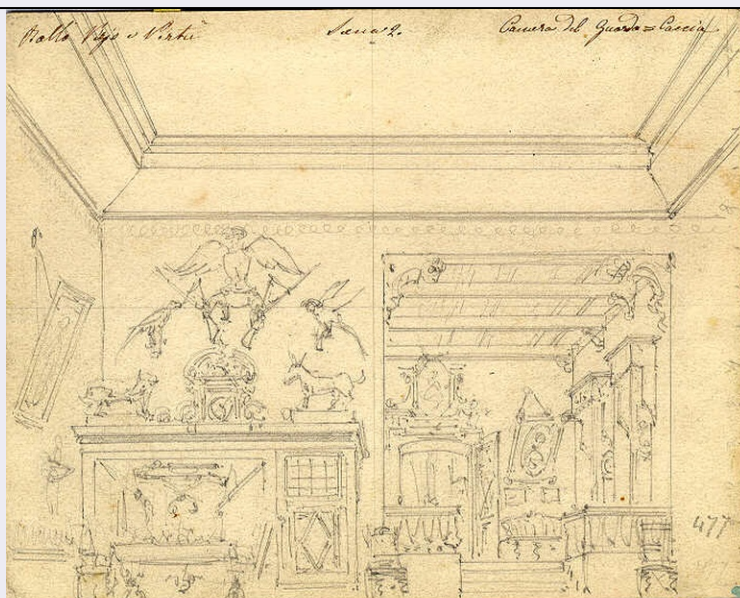 Ballo Vizio e Virtù
Scena 2.
Camera del Guarda=Caccia
477